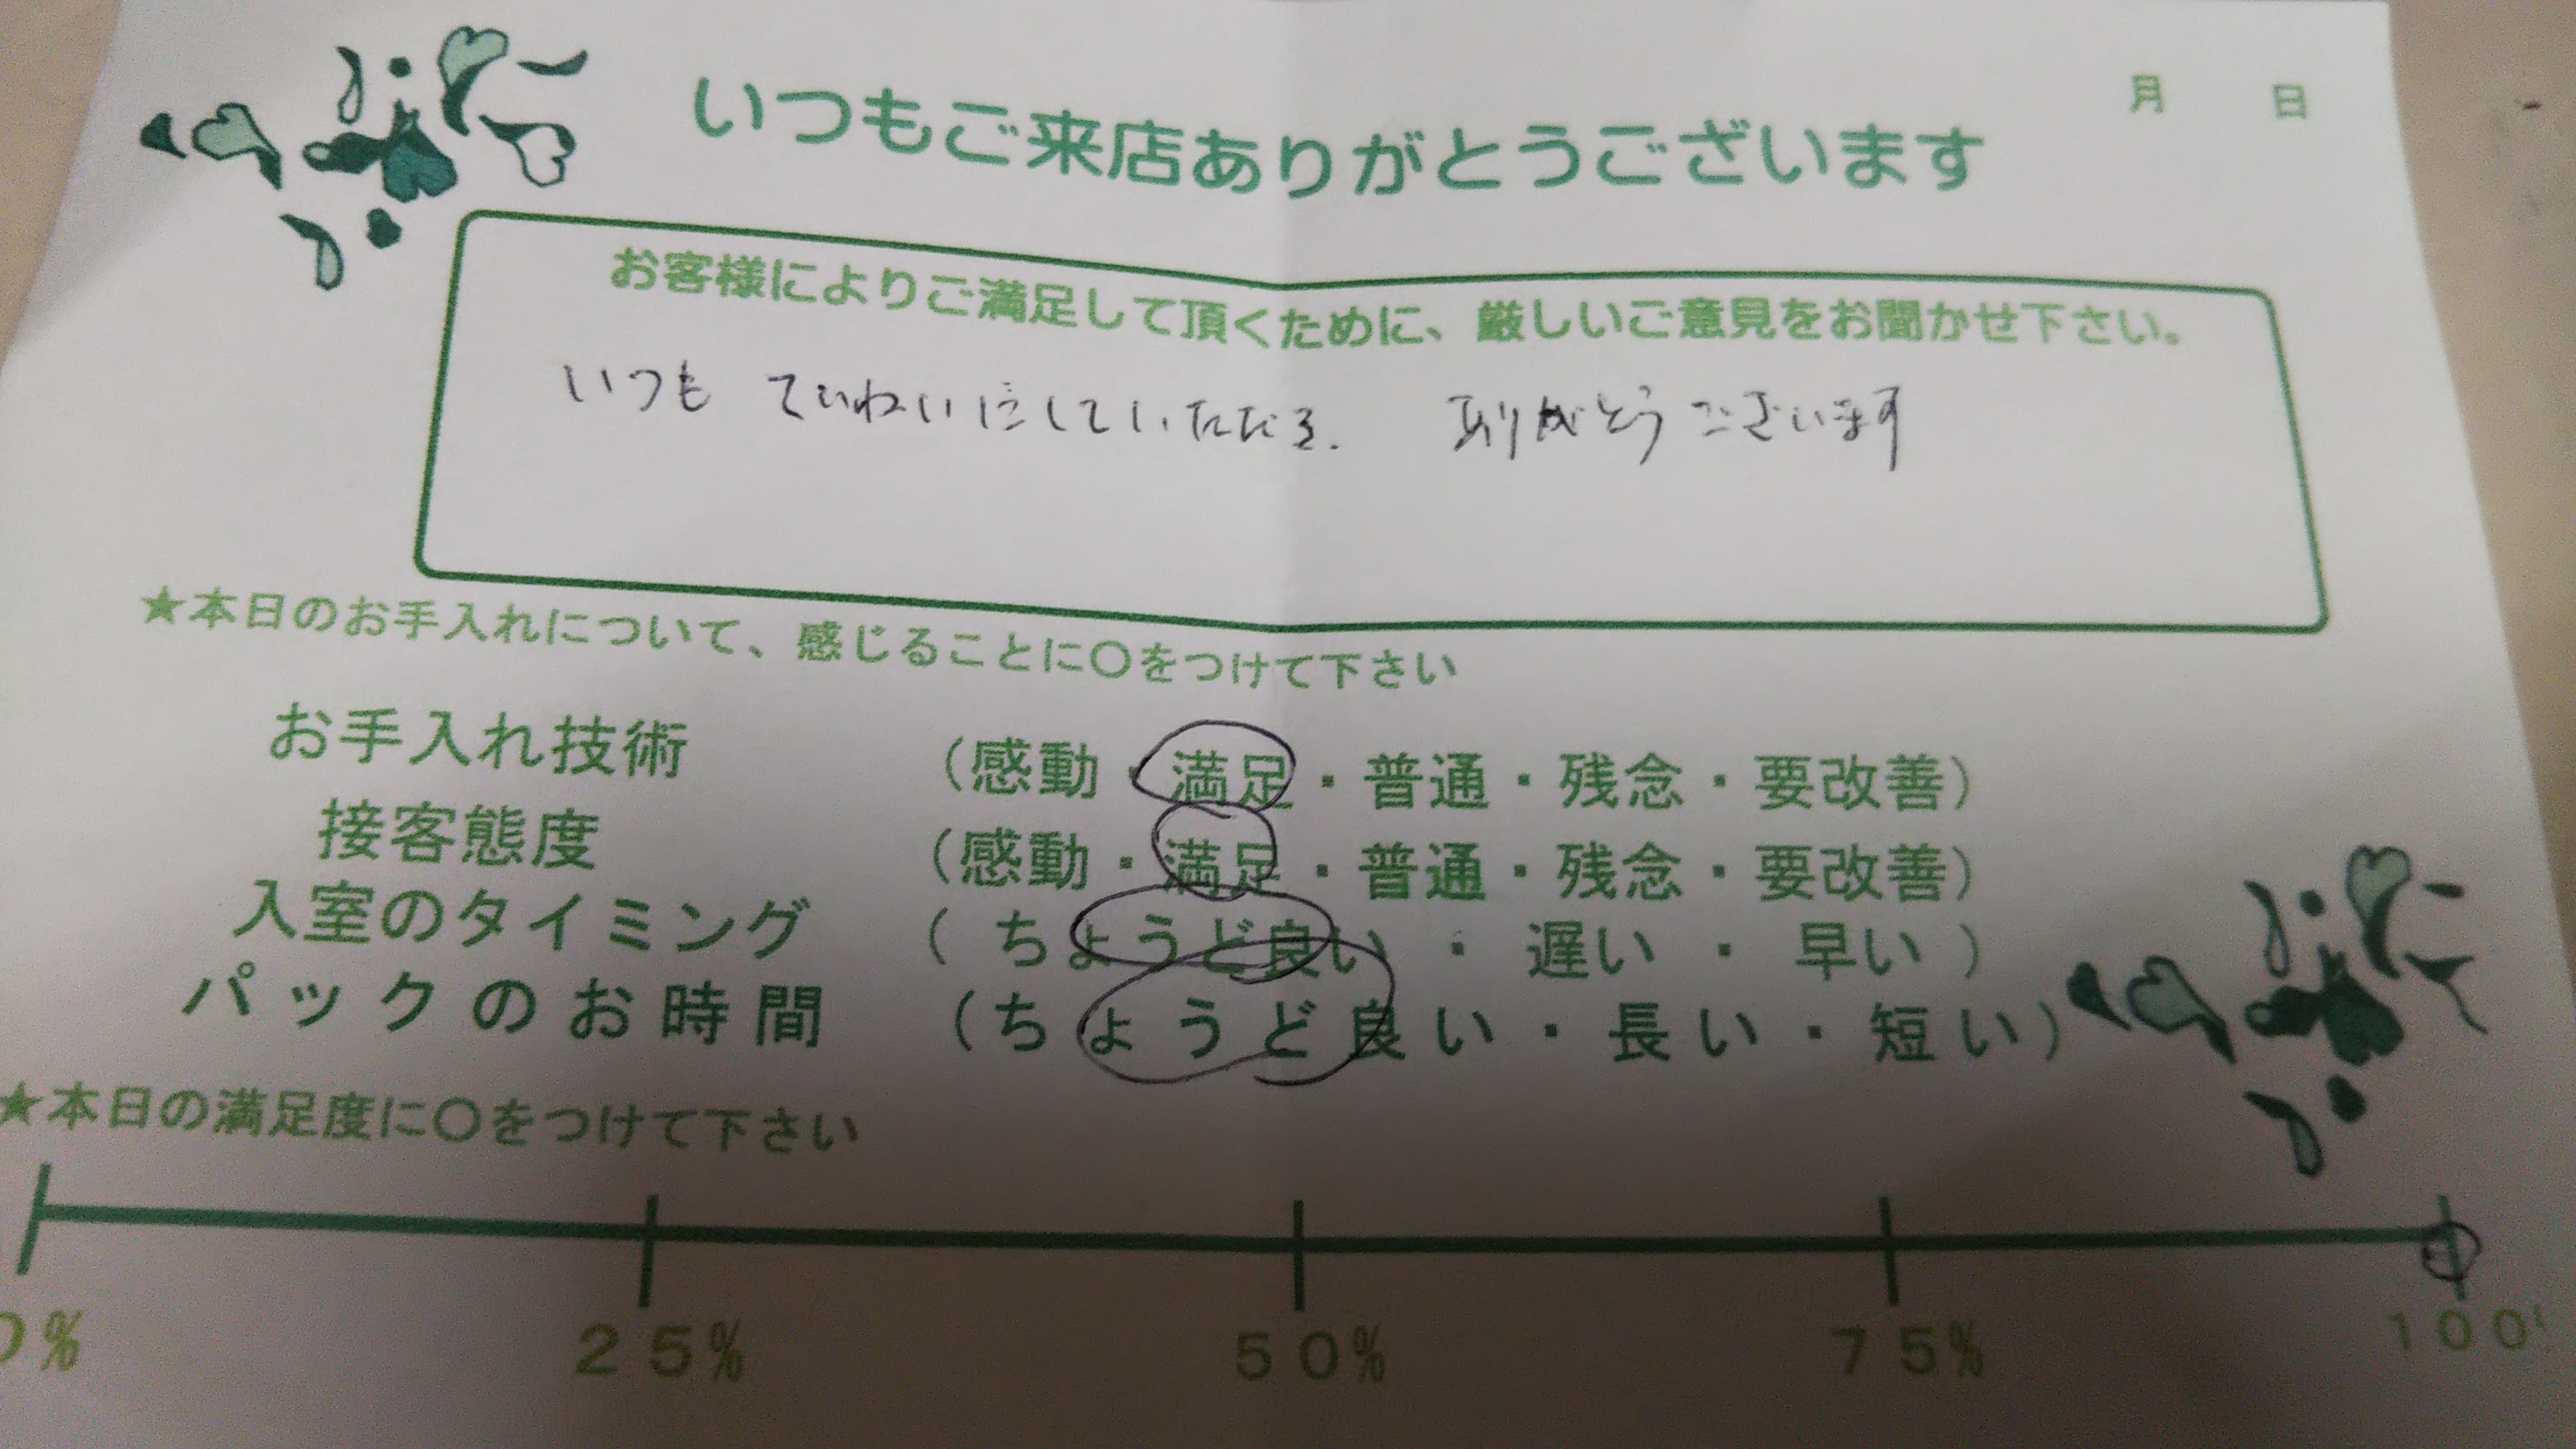 月 日
いつもご来店ありがとうございます
お客様によりご満足して頂くために、厳しいご意見をお聞かせ下さい。
いつも ていねいにしていただき. ありがとうございます
★本日のお手入れについて、感じることに〇をつけて下さい
お手入れ技術 (感動・満足・普通・残念・要改善)
接客態度 (感動・満足・普通・残念・要改善)
入室のタイミング ( ちょうど良い ・ 遅い ・ 早い )
パックのお時間 (ちょうど良い・長い・短い)
★本日の満足度に〇をつけて下さい
0% 25% 50% 75% 100%